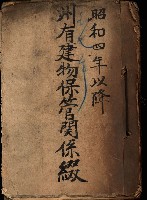 昭和四年以降
州有建物保管関係綴